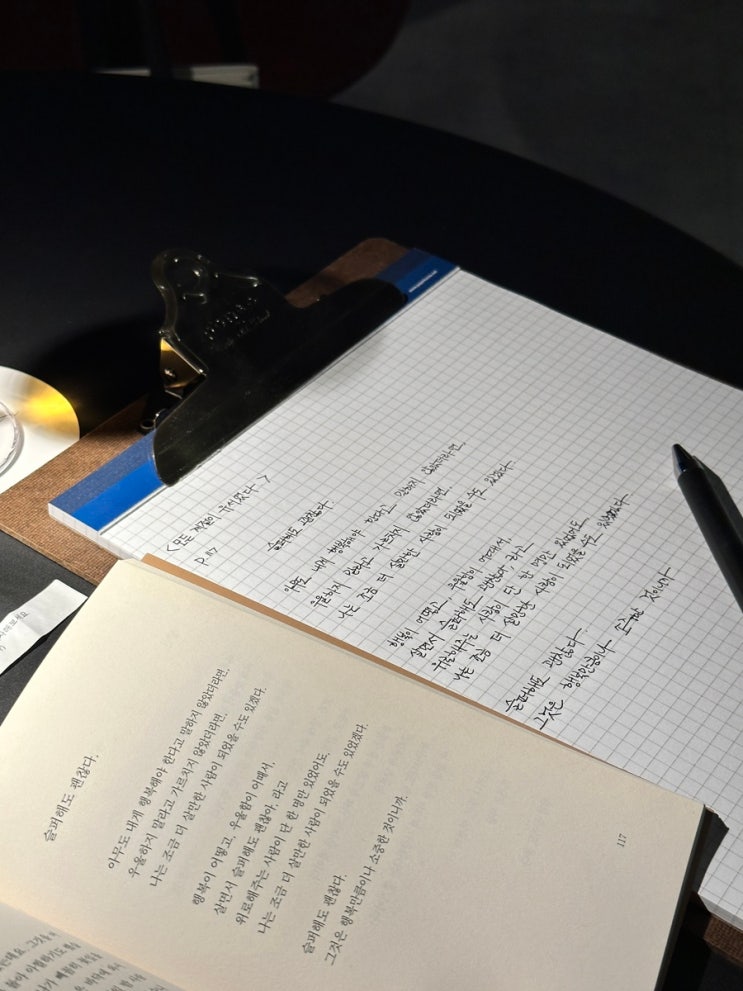 <모든 순간이 유서였다>
P.117
슬퍼해도 괜찮다.
아무도 내게 행복해야 한다고 말하지 않았더라면,
우울하지 말라고 가르치지 않았더라면,
나는 조금 더 살만한 사람이 되었을 수도 있겠다.
행복이 어떻고, 우울함이 어때서,
살면서 슬퍼해도 괜찮아, 라고
위로해주는 사람이 단 한 명만 있었어도,
나는 조금 더 살만한 사람이 되었을 수도 있었겠다.
슬퍼해도 괜찮다.
그것은 행복만큼이나 소중한 것이니까
슬퍼해도 괜찮다.
아무도 내게 행복해야 한다고 말하지 않았더라면,
우울하지 말라고 가르치지 않았더라면,
나는 조금 더 살만한 사람이 되었을 수도 있겠다.
행복이 어떻고, 우울함이 어때서,
살면서 슬퍼해도 괜찮아, 라고
위로해주는 사람이 단 한 명만 있었어도,
나는 조금 더 살만한 사람이 되었을 수도 있었겠다.
슬퍼해도 괜찮다.
그것은 행복만큼이나 소중한 것이니까.
117